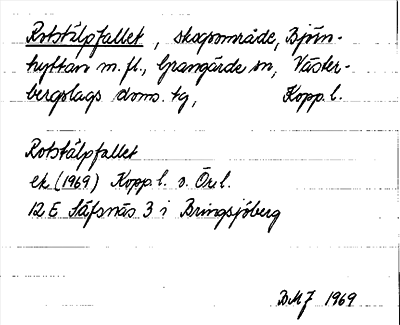 Rotstälpfallet, skogsområde, Björn-
hyttan m.fl., Grangärde sn, Väster-
bergslags doms. tg, Kopp. l.
Rotstälpfallet
ek (1969) Kopp. l. o. Ör. l.
12 E Säfsnäs 3 i Bringsjöberg
BMJ 1969